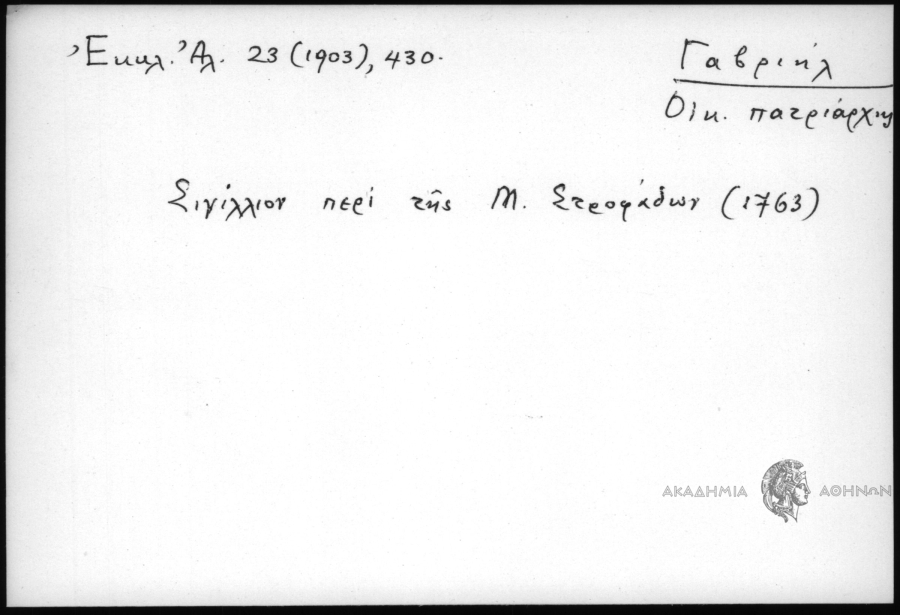 Ἐκκλ. Ἀλ. 23 (1903), 430.
Γαβριήλ
Οἰκ. πατριάρχης
Σιγίλλιον περὶ τῆς Μ. Στροφάδων (1763)
ΑΚΑΔΗΜΙΑ ΑΘΗΝΩΝ